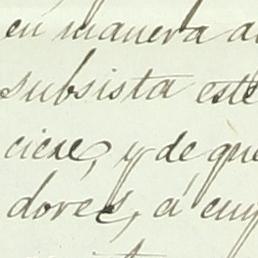 en manera al
subsista este
ciere, y de que
dores, á cuy